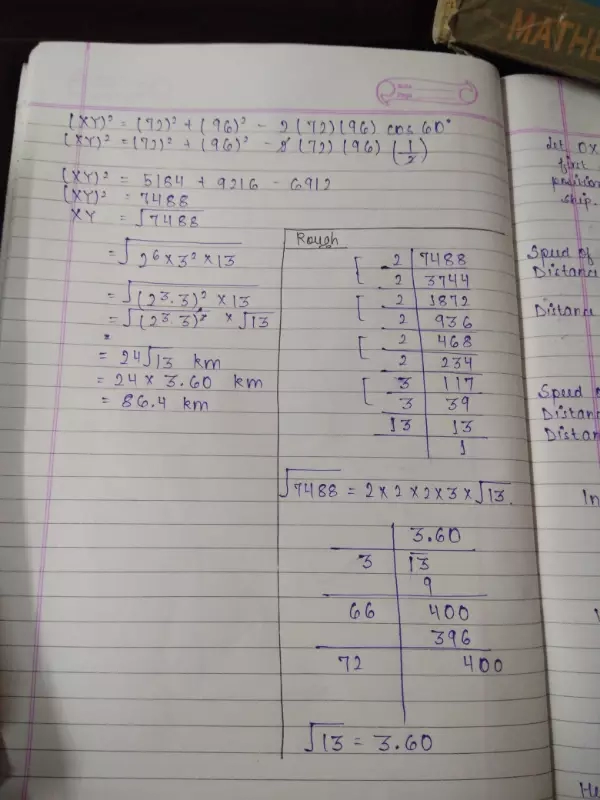 MATHE
(XY)² = (72)² + (96)² - 2(72)(96) cos 60°
(XY)² = (72)² + (96)² - 2(72)(96)(1/2)
(XY)² = 5184 + 9216 - 6912
(XY)² = 7488
XY = √7488
= √2⁶ × 3² × 13
= √(2³.3)² × 13
= √(2³.3)² × √13
= 24√13 km
= 24 × 3.60 km
= 86.4 km
Rough
2 | 7488
2 | 3744
2 | 1872
2 | 936
2 | 468
2 | 234
3 | 117
3 | 39
13 | 13
1
√7488 = 2×2×2×3×√13.
3.60
3 | 13
9
66 | 400
396
72 | 400
√13 = 3.60
let OX
first
position
ship.
Speed of
Distance
Distance
Speed o
Distan
Distan
In
He